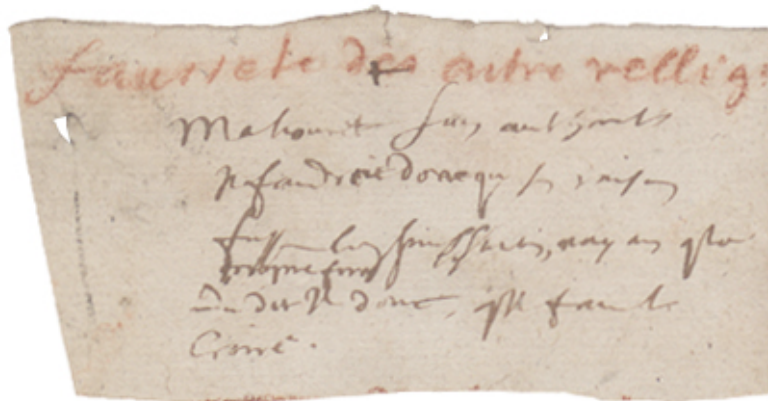 fausseté des autre rellig
Mahomet sans authorité
Il faudroit donc que ses raisons
fussent bien puissantes, n'ayant que
leur propre force
Que dit il donc, qu'il faut le
Croire.